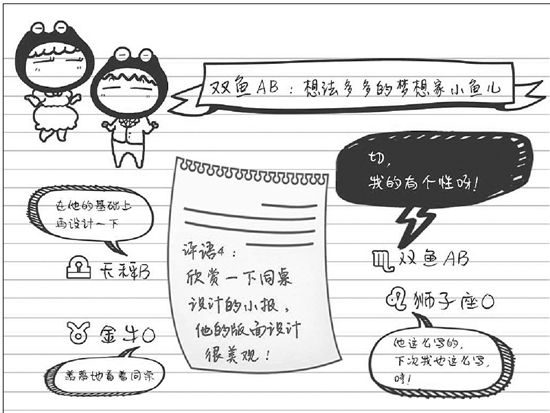 双鱼AB:想法多多的梦想家小鱼儿
切,
我的有个性呀!
在他的基础上
再设计一下
天秤B
评语4:
欣赏一下同桌
设计的小报,
他的版面设计
很美观!
双鱼AB
狮子座O
金牛O
羞羞地看看同桌
他这么写的,
下次我也这么写,
哼!